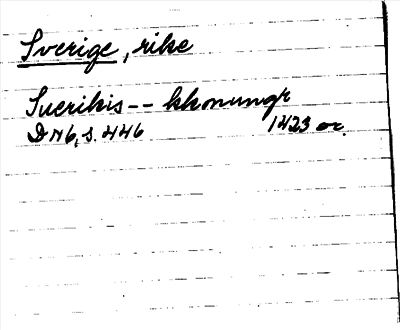 Sverige, rike
Suerikis -- kkonungr
DN 6, s. 446 1423 or.